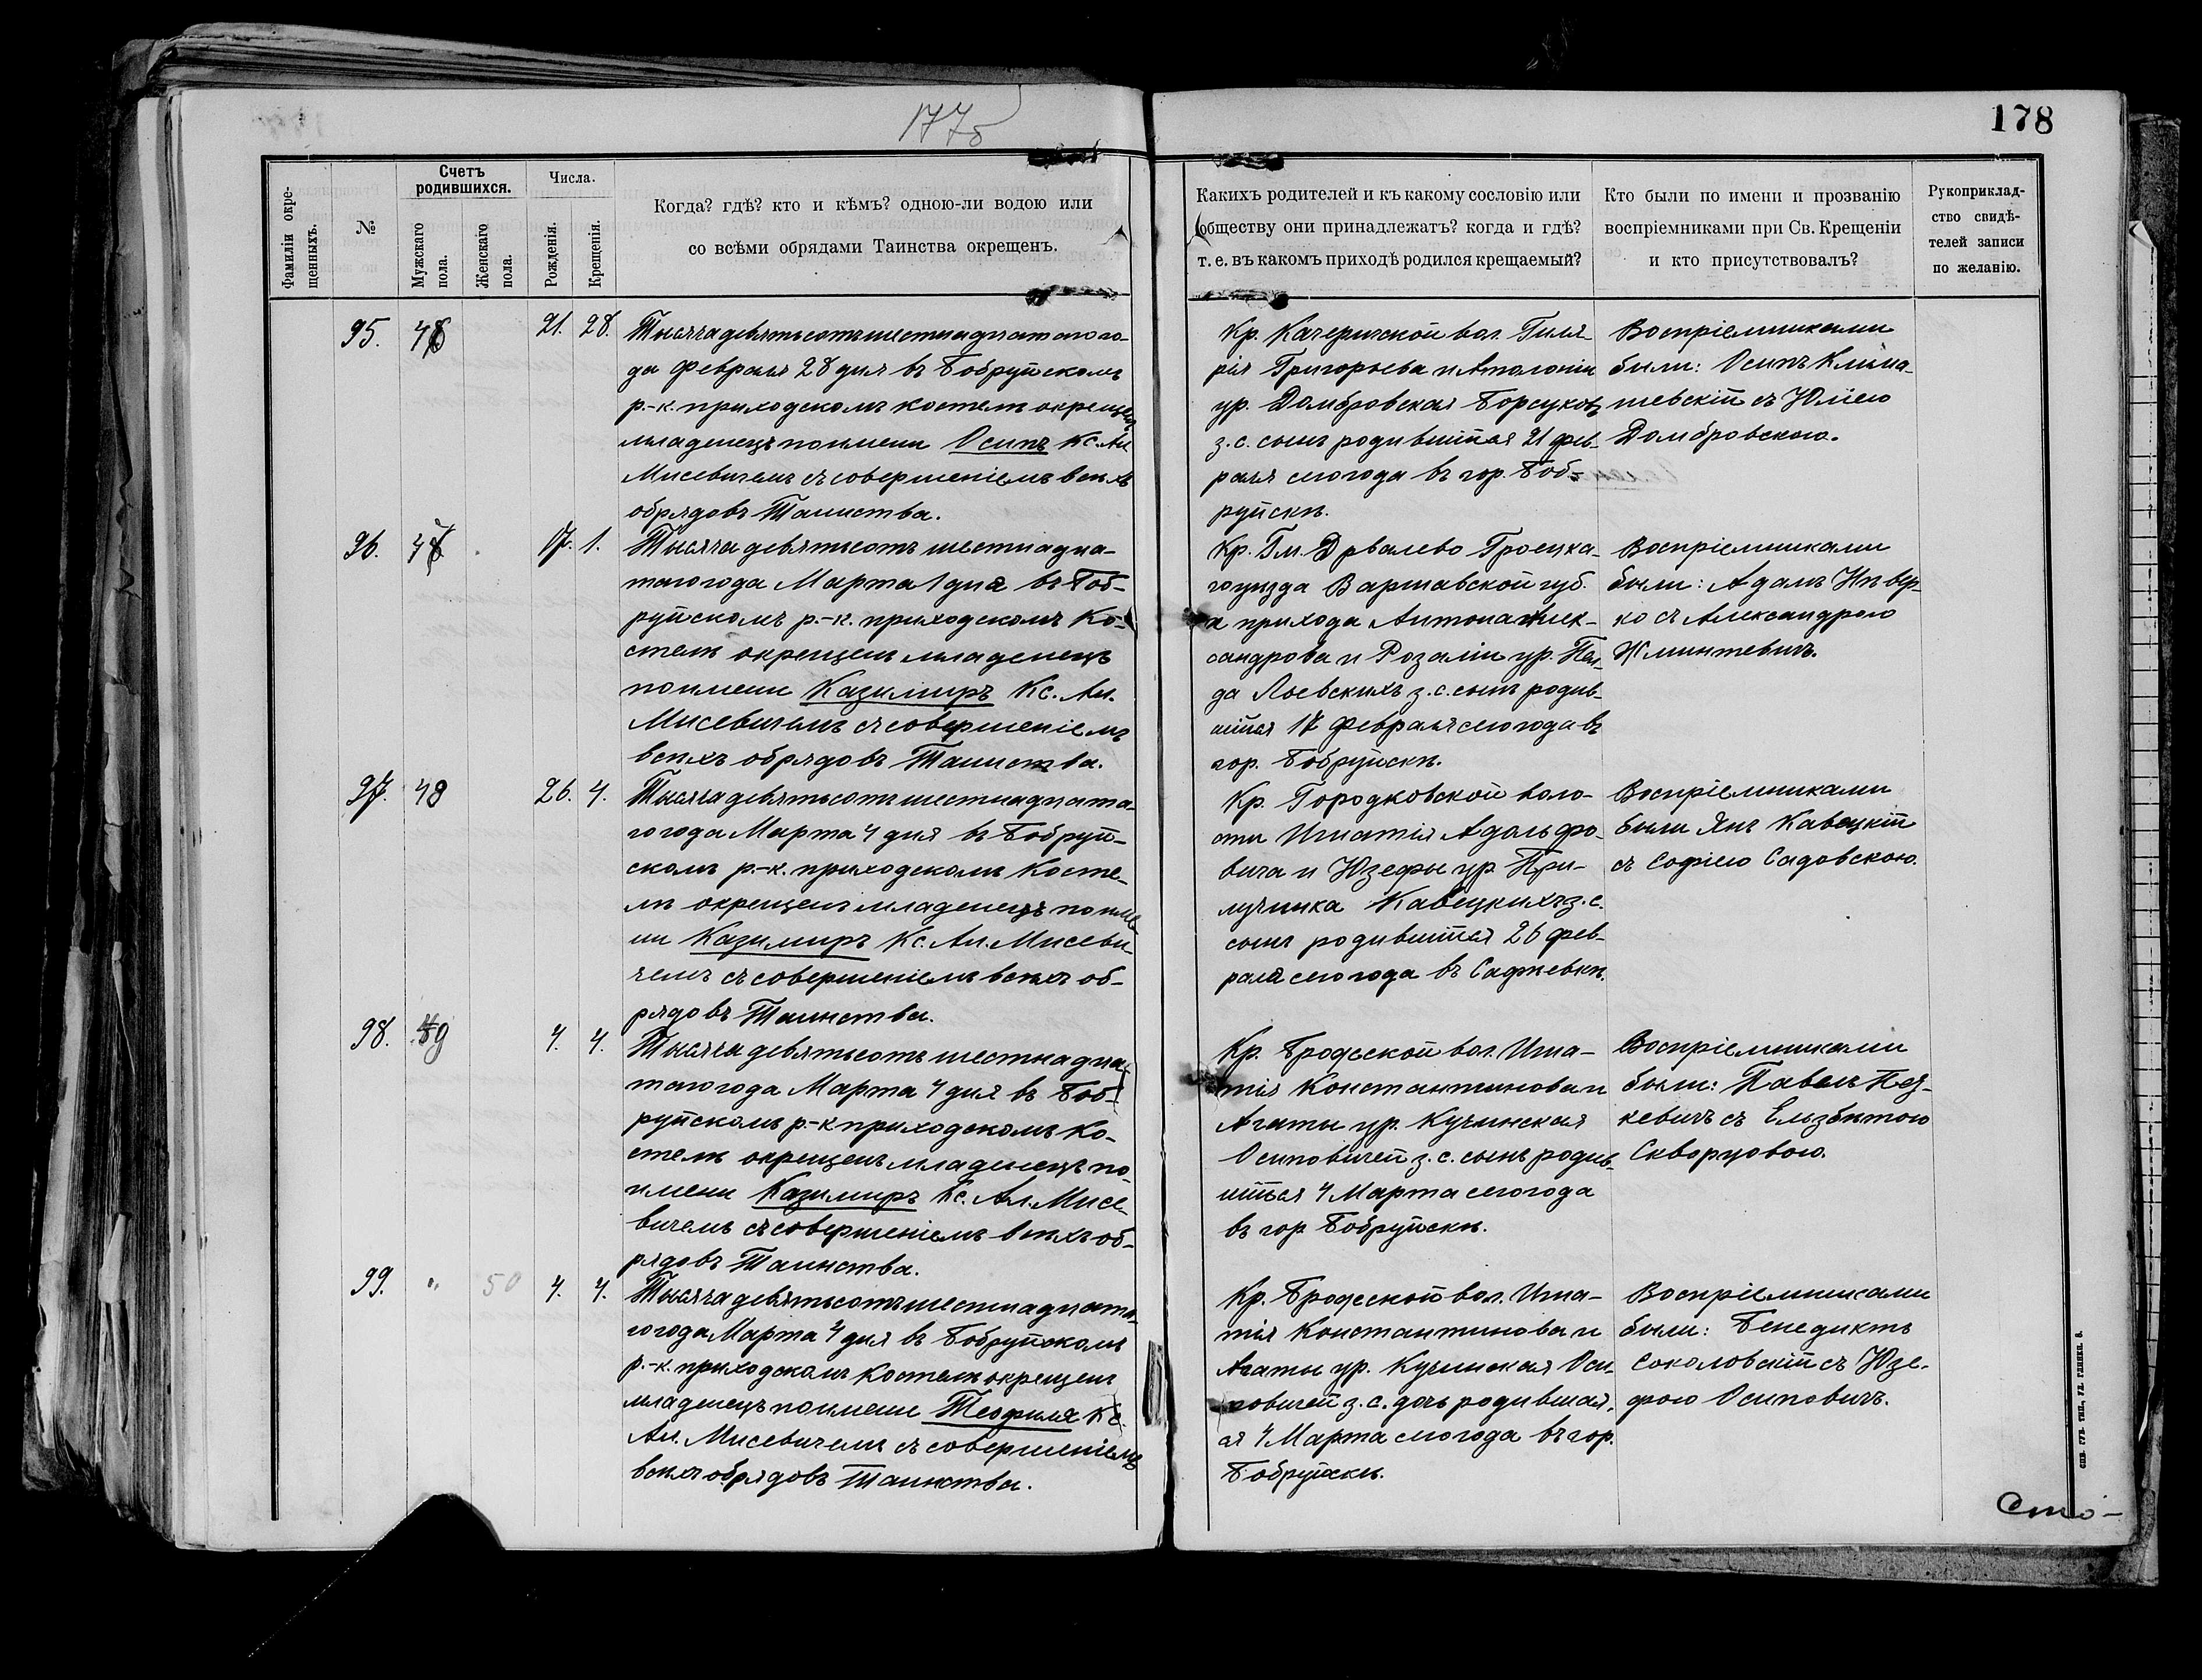 177б
178
Фамиліи окре-
щенныхъ.
№
Счетъ
родившихся.
Мужскаго
пола.
Женскаго
пола.
Числа.
Рожденія.
Крещенія.
Когда? гдѣ? кто и кѣмъ? одною-ли водою или
со всѣми обрядами Таинства окрещенъ.
Какихъ родителей и къ какому сословію или
обществу они принадлежатъ? когда и гдѣ?
т. е. въ какомъ приходѣ родился крещаемый?
Кто были по имени и прозванію
воспріемниками при Св. Крещеніи
и кто присутствовалъ?
Рукоприклад-
ство свидѣ-
телей записи
по желанію.
95.
21. 28.
Тысяча девятьсотъ шестнадцатого го-
да Февраля 28 дня въ Бобруйскомъ
р.-к. приходскомъ костелѣ окрещенъ
младенецъ по имени Осипъ Кс. Ал.
Мисевичемъ съ совершеніемъ всѣхъ
обрядовъ Таинства.
Кр. Качеричской вол. Гиля-
рія Григорьева и Аполоніи
ур. Домбровская Борсуковъ
з. с. сынъ родившійся 21 фев-
раля сего года въ гор. Боб-
руйскѣ.
Воспріемниками
были: Осипъ Клима-
шевскій съ Юліею
Домбровскою.
96.
17. 1.
Тысяча девятьсотъ шестнадца-
таго года Марта 1 дня въ Боб-
руйскомъ р.-к. приходскомъ Ко-
стелѣ окрещенъ младенецъ
по имени Казимиръ Кс. Ал.
Мисевичемъ съ совершеніемъ
всѣхъ обрядовъ Таинства.
Кр. Гм. Дрвалево Гроецка-
го уѣзда Варшавской губ.
и прихода Антона Алек-
сандрова и Розаліи ур.
да Лоевскихъ з. с. сынъ родив-
шійся 17 Февраля сего года въ
гор. Бобруйскѣ.
Воспріемниками
были: Адамъ
ко съ Александрою
Жминтевичъ.
97. 48
26. 4.
Тысяча девятьсотъ шестнадцата-
го года Марта 4 дня въ Бобруй-
скомъ р.-к. приходскомъ Косте-
лѣ окрещенъ младенецъ по име
ни Казимиръ Кс. Ал. Мисеви
чемъ съ совершеніемъ всѣхъ об-
рядовъ Таинства.
Кр. Городковской воло-
сти Игнатія Адольфо-
вича и Юзефы ур. При-
лучика Кавецкихъ з. с.
сынъ родившійся 26 фев-
раля сего года въ Саджевкѣ.
Воспріемниками
были Янъ Кавецкій
съ Софіею Садовскою.
98. 49
4. 4.
Тысяча девятьсотъ шестнадца-
таго года Марта 4 дня въ Боб-
руйскомъ р.-к приходскомъ Ко-
стелѣ окрещенъ младенецъ по
имени Казимиръ Кс. Ал. Мисе-
вичемъ съ совершеніемъ всѣхъ об-
рядовъ Таинства.
Кр. Бродеской вол. Игна-
тія Константинова и
Агаты ур. Кучинская
Осиповичей з. с. сынъ родив-
шійся 4 Марта сего года
въ гор. Бобруйскѣ.
Воспріемниками
были: Павелъ
кевичъ съ Ельзбѣтою
Скворцовою.
99. „ 50
4. 4.
Тысяча девятьсотъ шестнадцата-
го года Марта 4 дня въ Бобруйскомъ
р.-к. приходскомъ Костелѣ окрещенъ
младенецъ по имени Теофиля Кс.
Ал. Мисевичемъ съ совершеніемъ
всѣхъ обрядовъ Таинства.
Кр. Бродеской вол. Игна-
тія Константинова и
Агаты ур. Кучинская Оси-
повичей з. с. дочь родивша-
ся 4 Марта сего года въ гор.
Бобруйскѣ.
Воспріемниками
были: Бенедиктъ
Соколовскій съ Юзе-
фою Осиповичъ.
Сто-